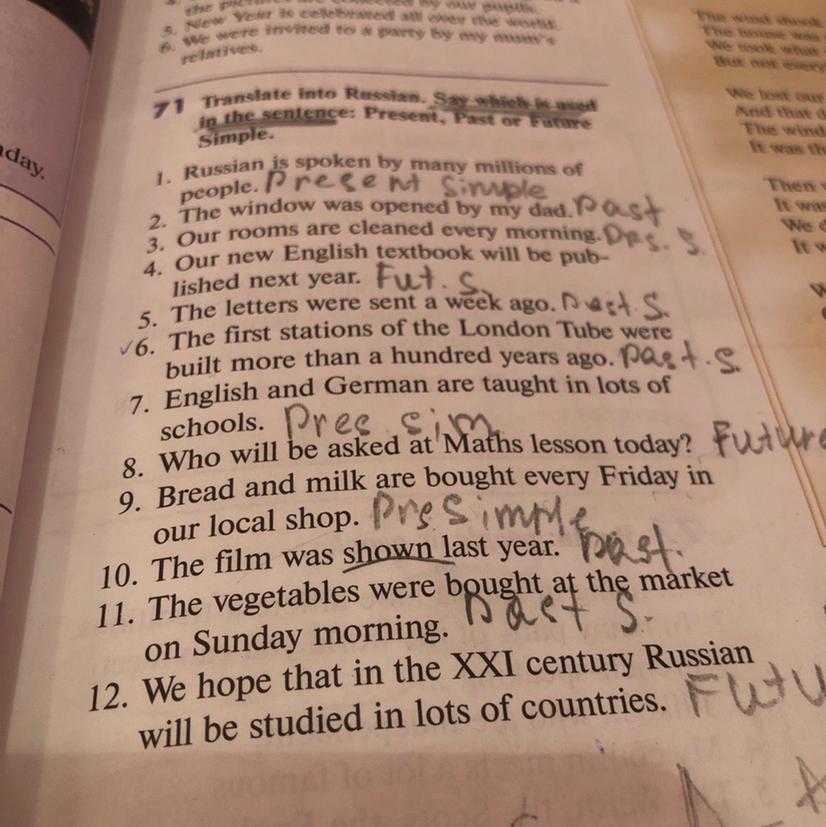 the pictures are collected by our pupils.
5. New Year is celebrated all over the world.
6. We were invited to a party by my mum's
relatives.
71 Translate into Russian. Say which is used
in the sentence: Present, Past or Future
Simple.
1. Russian is spoken by many millions of
people. Present Simple
2. The window was opened by my dad. Past
3. Our rooms are cleaned every morning. Prs. S.
4. Our new English textbook will be pub-
lished next year. Fut. S.
5. The letters were sent a week ago. Past. S.
✓6. The first stations of the London Tube were
built more than a hundred years ago. Past. S.
7. English and German are taught in lots of
schools. Pres sim
8. Who will be asked at Maths lesson today? Future
9. Bread and milk are bought every Friday in
our local shop. Prs Simple
10. The film was shown last year. Past.
11. The vegetables were bought at the market
on Sunday morning. Past S.
12. We hope that in the XXI century Russian
will be studied in lots of countries. Futu
day.
The wind shook
The house was
We took what
But not every
We lost our
And that d
The wind
It was th
Then
It was
We d
It w